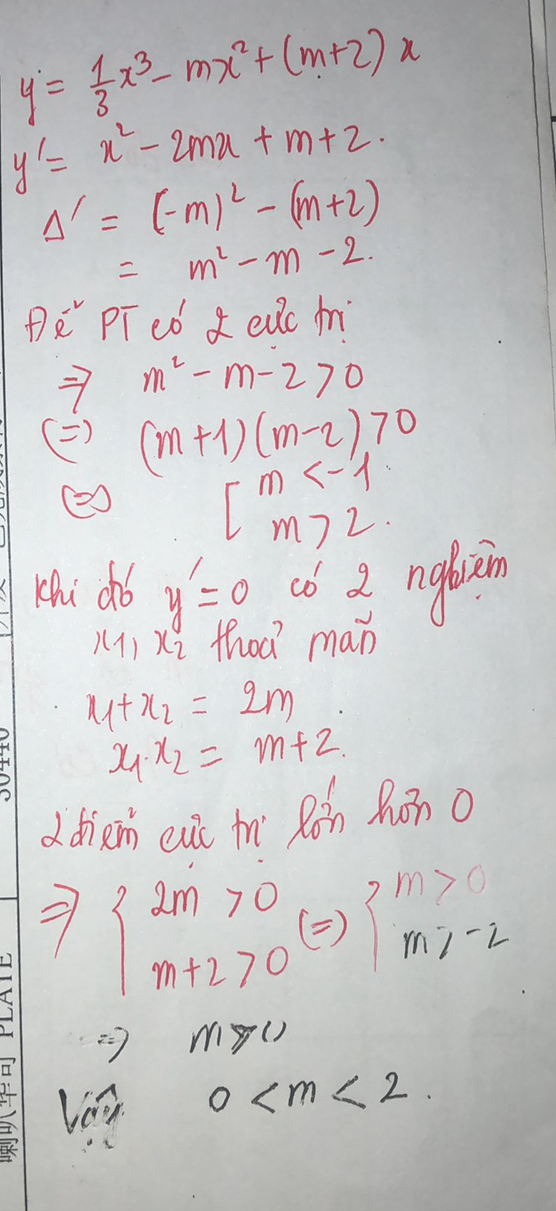 y = 1/3 x³ - mx² + (m+2) x
y' = x² - 2mx + m + 2.
Δ' = (-m)² - (m+2)
= m² - m - 2.
Để PT có 2 cực trị
=> m² - m - 2 > 0
(=) (m+1)(m-2) > 0
(=) [ m < -1
m > 2.
Khi đó y' = 0 có 2 nghiệm
x1, x2 thoả mãn
x1 + x2 = 2m
x1.x2 = m+2.
2 điểm cực trị lớn hơn 0
=> { 2m > 0 (=) { m > 0
m+2 > 0 m > -2
=> m > 0
Vậy 0 < m < 2.
30440
PLATE